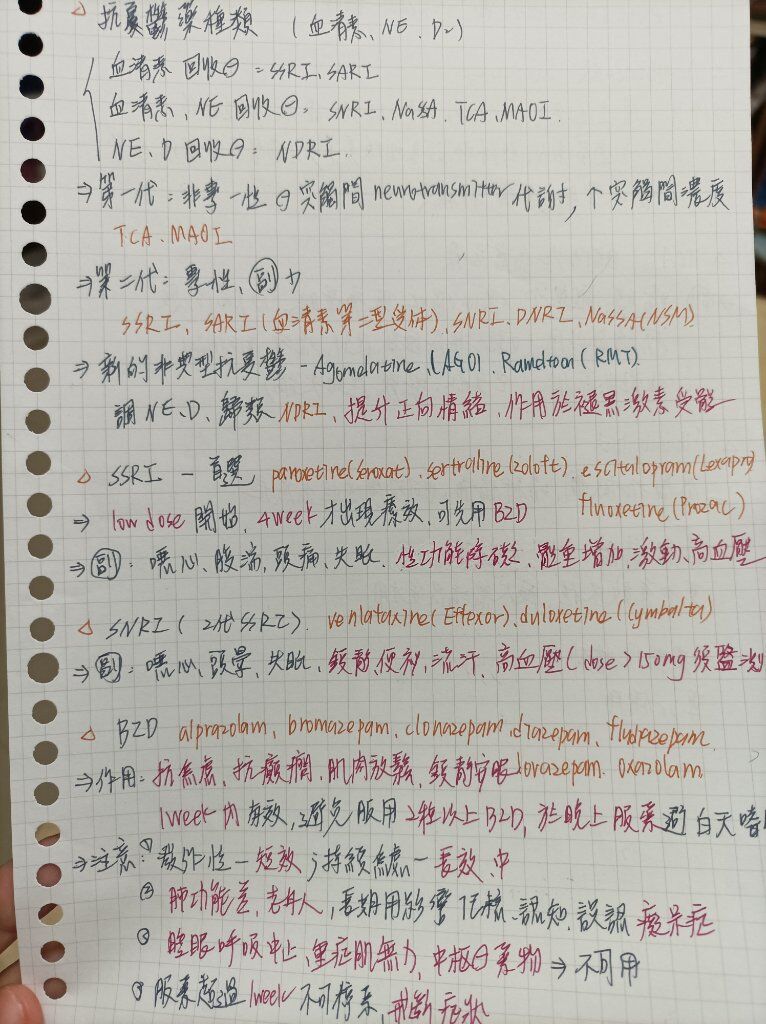 △ 抗憂鬱藥種類 (血清素、NE、D2)
血清素 回收⊖ = SSRI、SARI
血清素、NE 回收⊖: SNRI、NaSSA、TCA、MAOI
NE、D 回收⊖: NDRI.
⇒ 第一代: 非專一性 ⊖ 突觸間 neurotransmitter 代謝, ↑突觸間濃度
TCA、MAOI
⇒ 第二代: 專一性、副少
SSRI、SARI (血清素第二型受体)、SNRI、DNRI、NaSSA(NSM)
⇒ 新的非典型抗憂鬱 - Agomelatine (AGO)、Ramelteon (RMT)
調NE、D、歸類 NDRI、提升正向情緒、作用於褪黑激素受體
△ SSRI - 首選 paroxetine(seroxat)、sertraline(zoloft)、escitalopram(Lexapro)
fluoxetine(Prozac)
⇒ low dose 開始、4week 才出現療效、可先用BZD
⇒ 副: 噁心、腹瀉、頭痛、失眠、性功能障礙、體重增加、激動、高血壓
△ SNRI ( 2代 SSRI). venlafaxine(Effexor)、duloxetine(Cymbalta)
⇒ 副: 噁心、頭暈、失眠、鎮靜、便秘、流汗、高血壓 (dose > 150mg 須監測
△ BZD alprazolam、bromazepam、clonazepam、diazepam、fludiazepam
⇒ 作用: 抗焦慮、抗癲癇、肌肉放鬆、鎮靜安眠 lorazepam、oxazolam
1week 內有效, 避免服用 2種以上BZD, 於晚上服藥避白天嗜
⇒ 注意: ① 發作性 - 短效; 持續焦慮 - 長效、中
② 肺功能差、老人, 長期用影響 認知、誤認癡呆症
③ 睡眠呼吸中止、重症肌無力、中樞⊖藥物 ⇒ 不可用
④ 服藥超過1week 不可停藥, 戒斷症狀